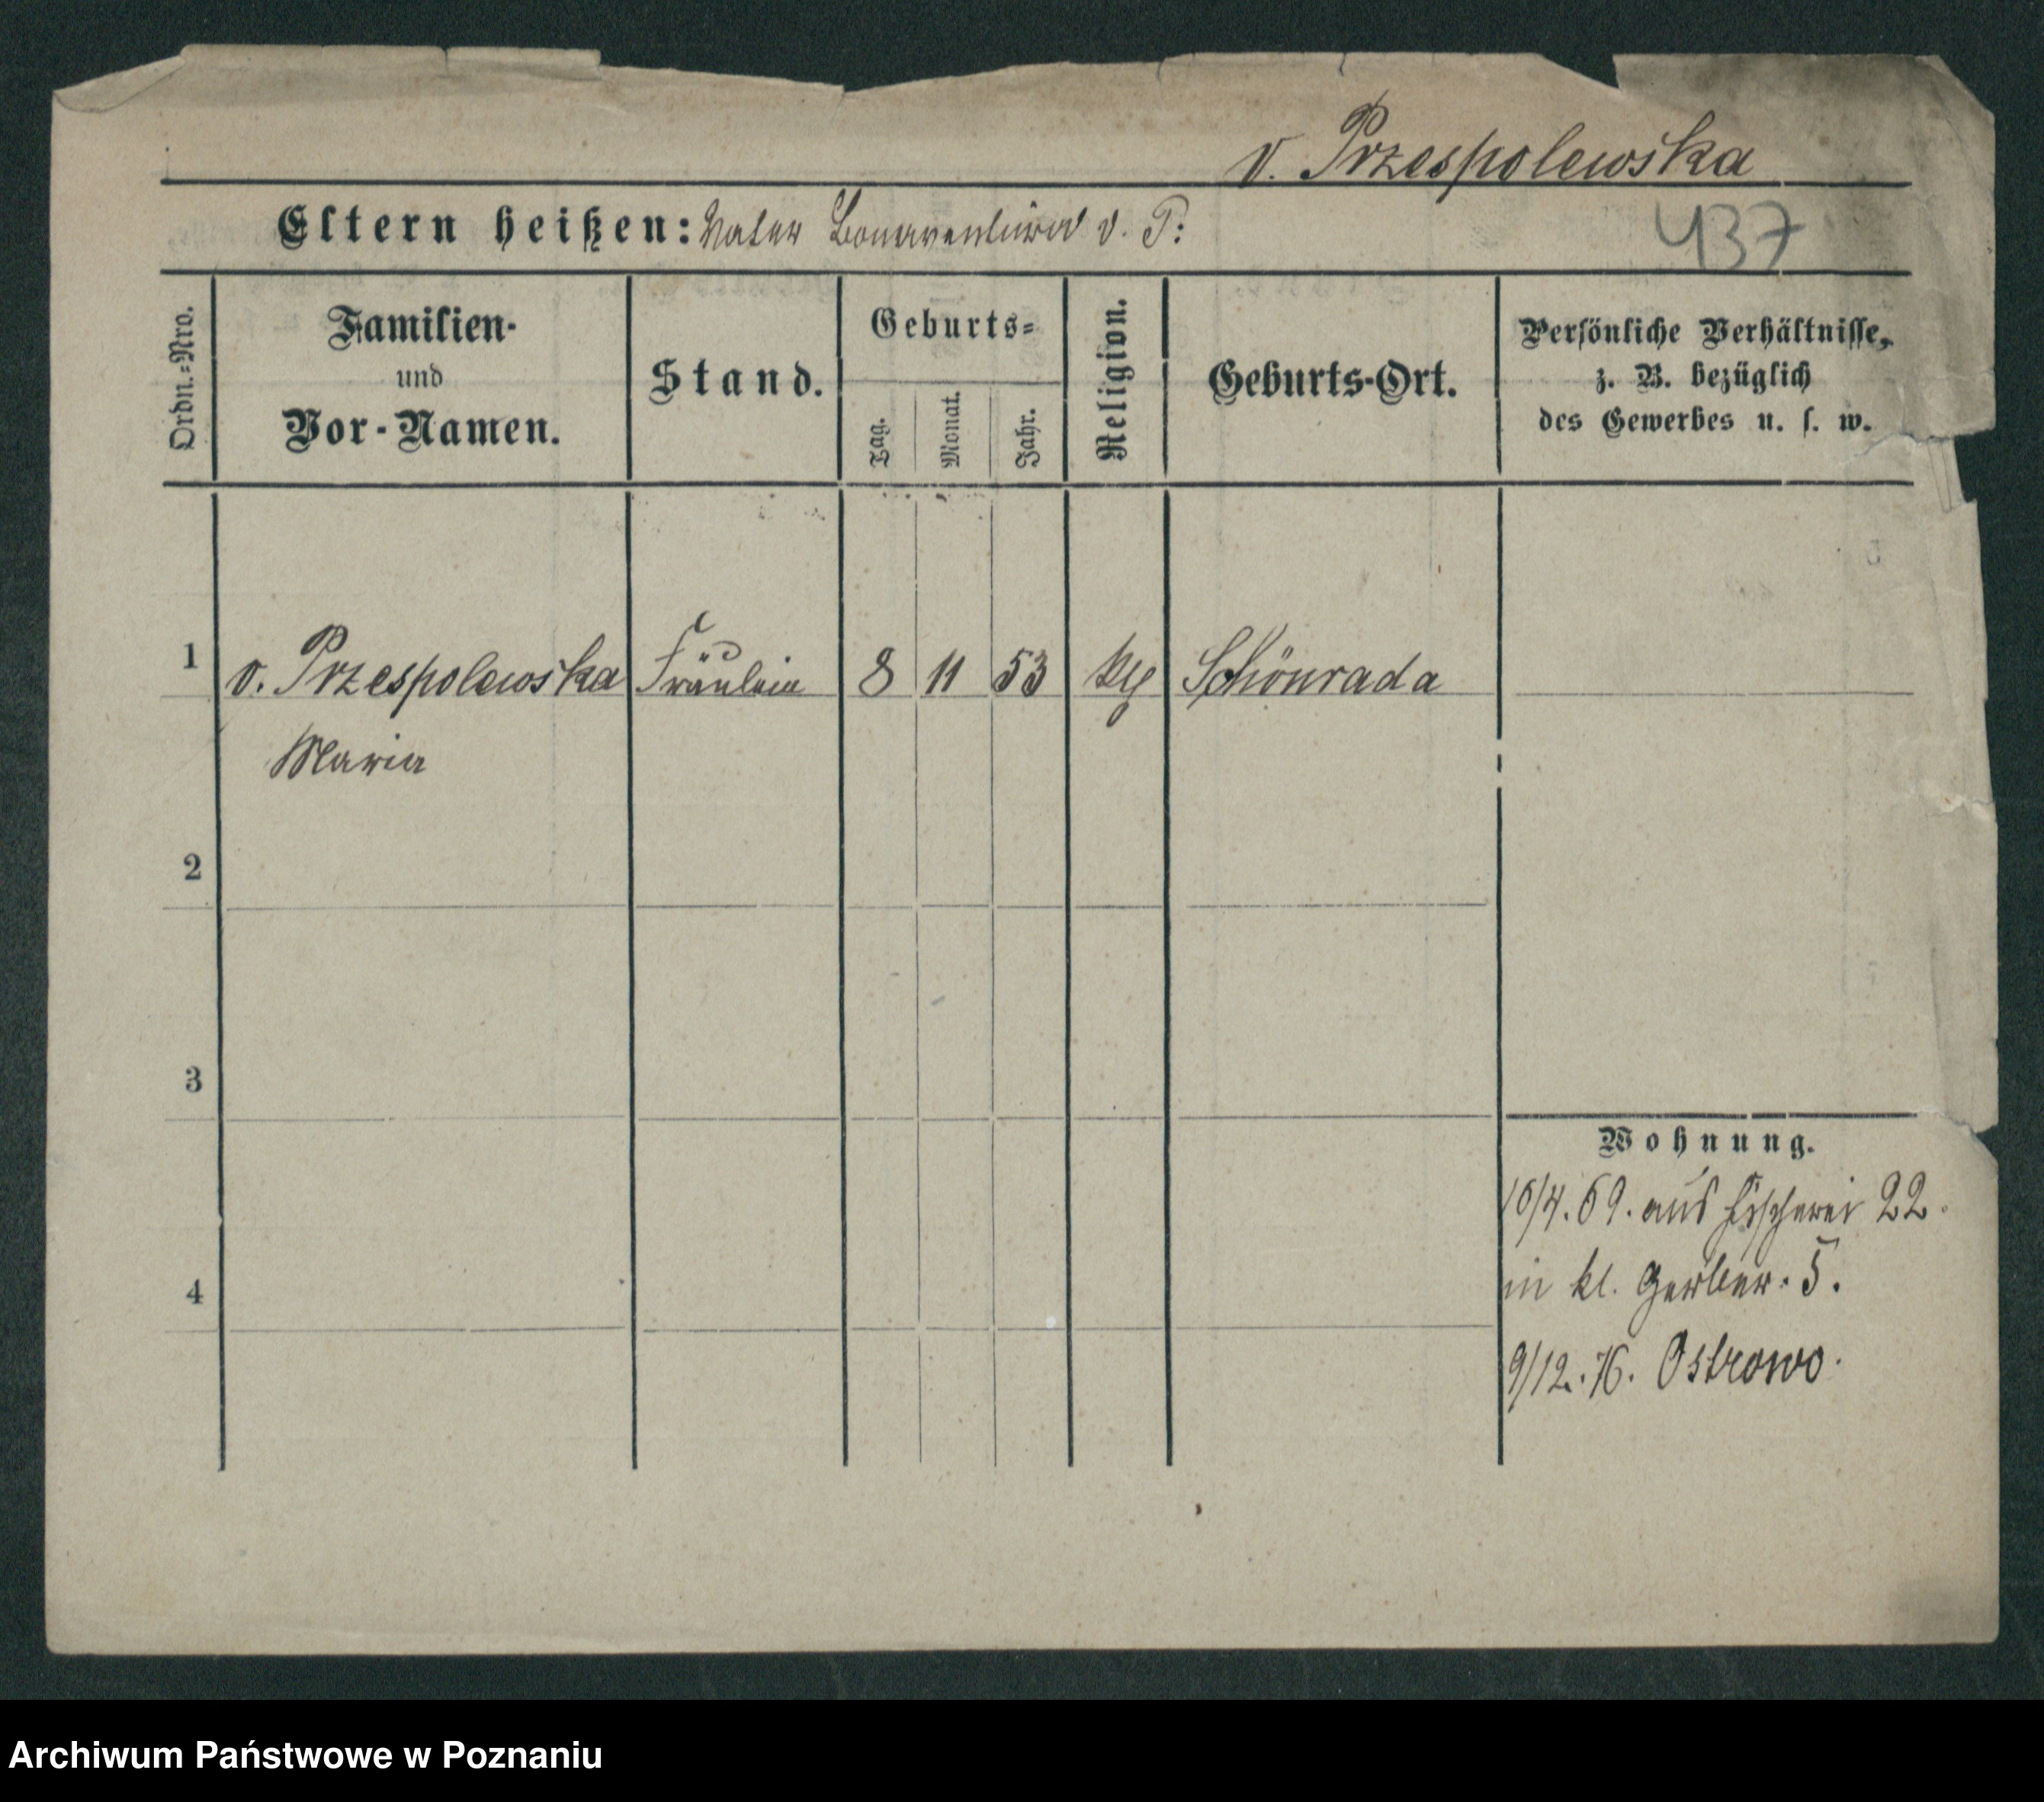 v. Przespolewska
Eltern heißen: Vater Bonaventura v. P:
437
Ordn.-Nro.
Familien-
und
Vor-Namen.
Stand.
Geburts-
Tag.
Monat.
Jahr.
Religion.
Geburts-Ort.
Persönliche Verhältnisse,
z. B. bezüglich
des Gewerbes u. s. w.
1 v. Przespolewska Fräulein 8 11 53 Schönrada
Maria
2
3
4
Wohnung.
/4. 69. aus Fischerei 22.
in kl. Gerber. 5.
9/12. 76. Ostrowo.
Archiwum Państwowe w Poznaniu